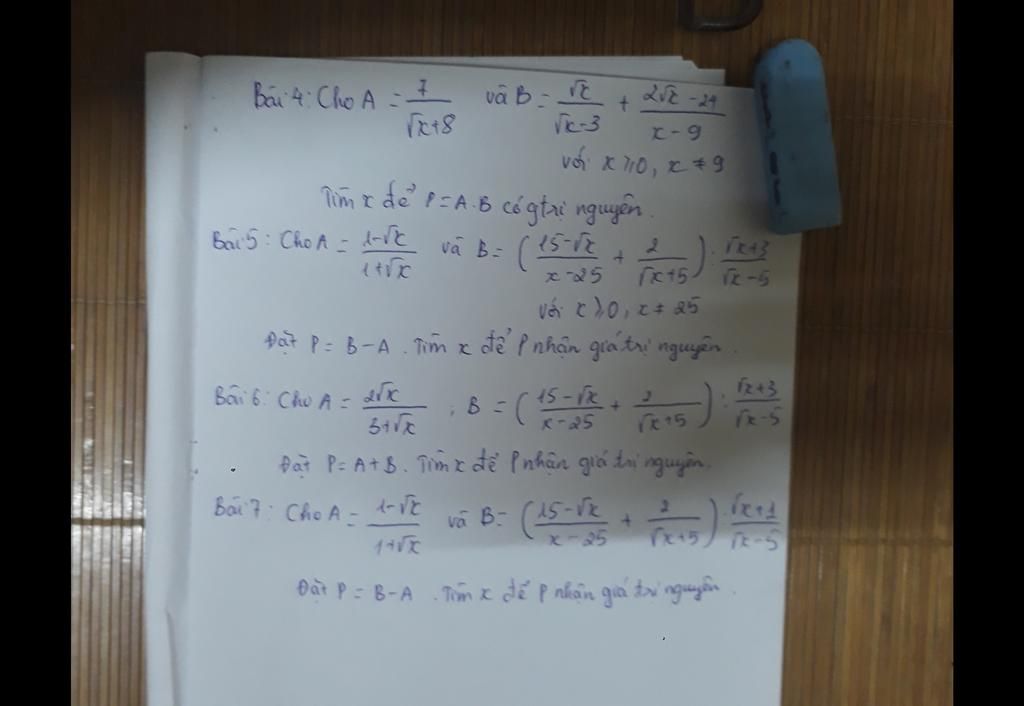 Bài 4: Cho A = 7/(√x+8) và B = √x/(√x-3) + (2√x-24)/(x-9)
với x ≥ 0, x ≠ 9
Tìm x để P = A.B có gtrị nguyên.
Bài 5: Cho A = (1-√x)/(1+√x) và B = ((15-√x)/(x-25) + 2/(√x+5)) : (√x+3)/(√x-5)
với x ≥ 0, x ≠ 25
Đặt P = B - A. Tìm x để P nhận giá trị nguyên.
Bài 6: Cho A = 2√x/(3+√x) ; B = ((15-√x)/(x-25) + 2/(√x+5)) : (√x+3)/(√x-5)
Đặt P = A + B. Tìm x để P nhận giá trị nguyên.
Bài 7: Cho A = (1-√x)/(1+√x) và B = ((15-√x)/(x-25) + 2/(√x+5)) : (√x+1)/(√x-5)
Đặt P = B - A. Tìm x để P nhận giá trị nguyên.